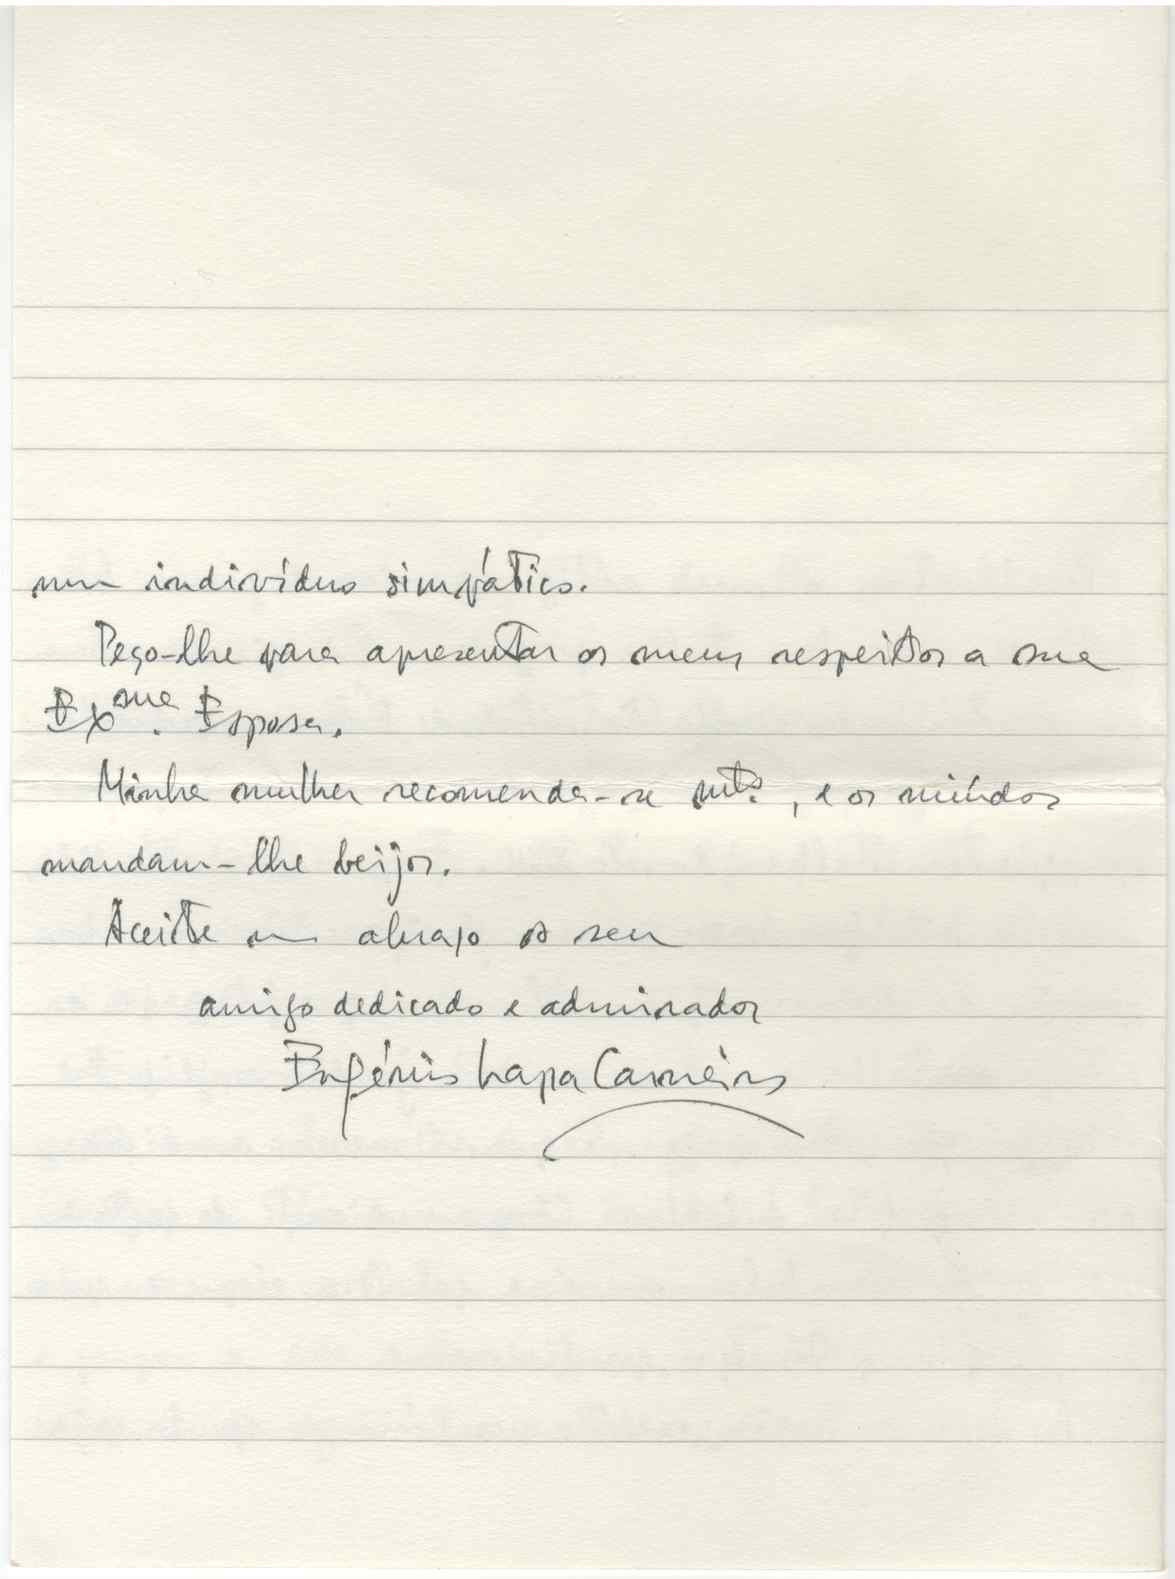 um indivíduo simpático.
Peço-lhe para apresentar os meus respeitos a sua
Exma. Esposa.
Minha mulher recomenda-se mto., e os miúdos
mandam-lhe beijos.
Aceite um abraço do seu
amigo dedicado e admirador
Eugénio Lapa Carneiro